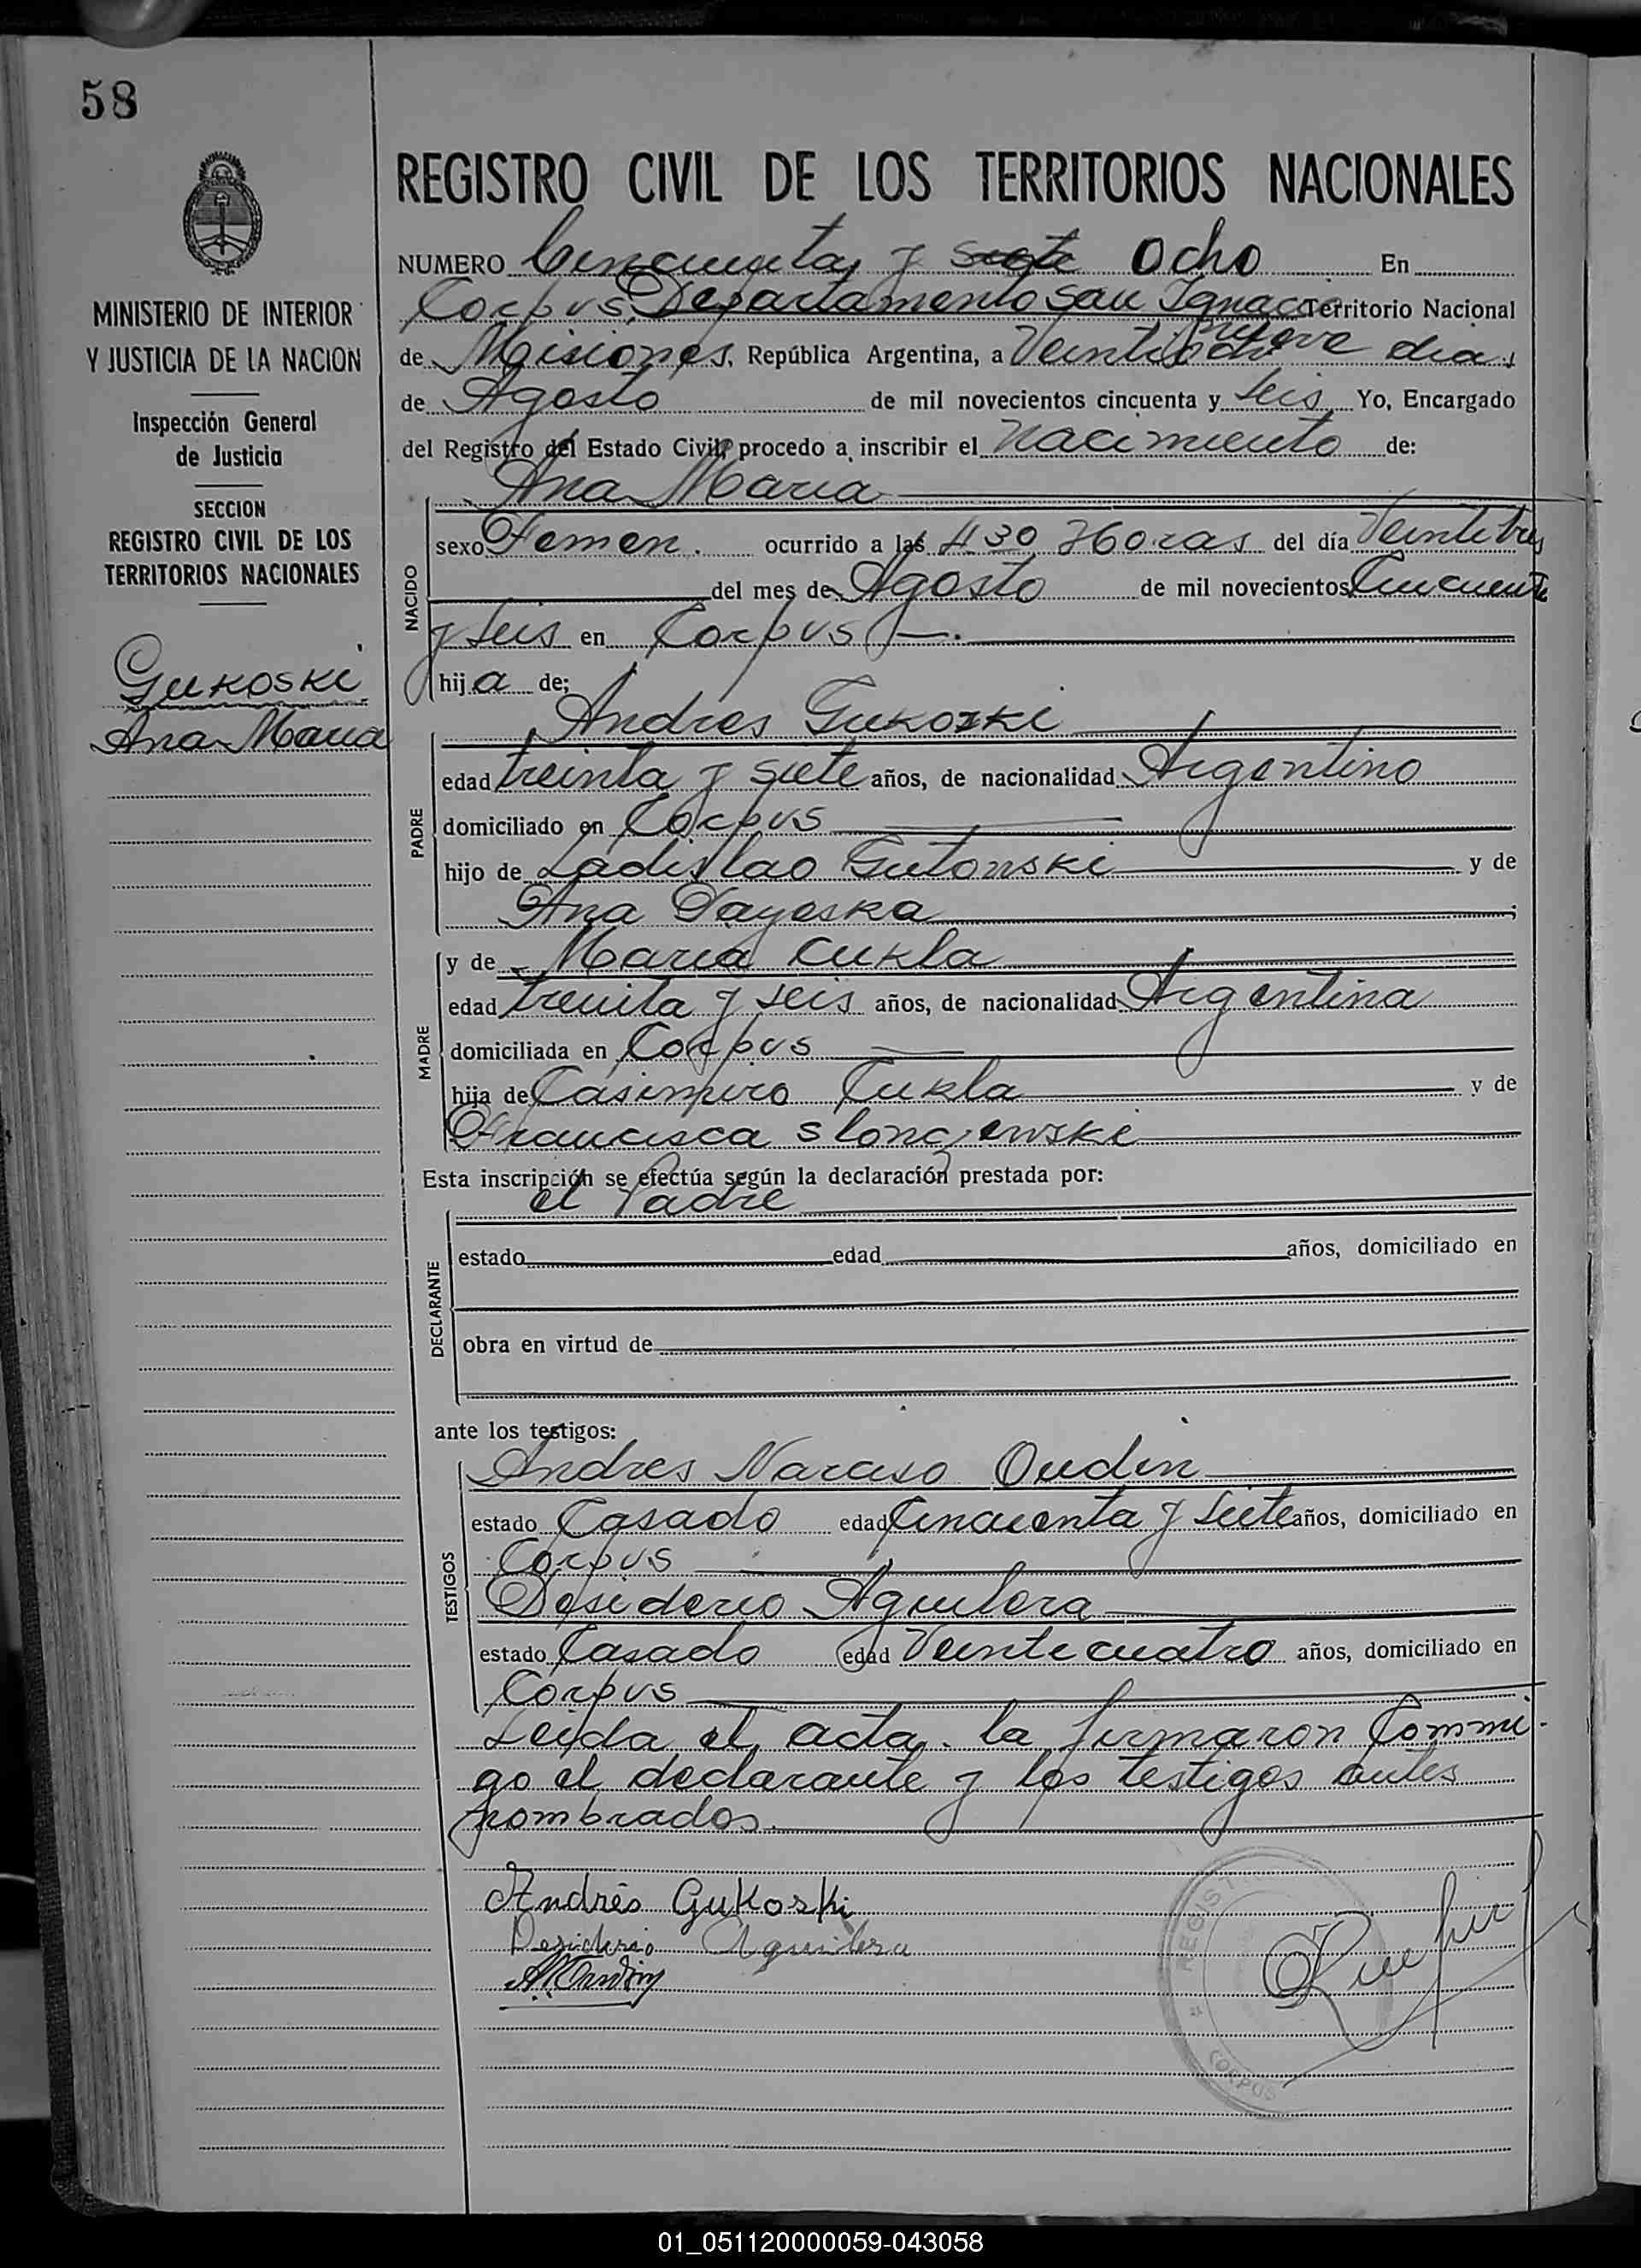 58
REGISTRO CIVIL DE LOS TERRITORIOS NACIONALES
MINISTERIO DE INTERIOR
Y JUSTICIA DE LA NACION
Inspección General
de Justicia
SECCION
REGISTRO CIVIL DE LOS
TERRITORIOS NACIONALES
Gukoski
Ana Maria
NUMERO Cincuenta y siete Ocho En
Corpus, Departamento San Ignacio Territorio Nacional
de Misiones, República Argentina, a Veintinueve dias
de Agosto de mil novecientos cincuenta y Seis Yo, Encargado
del Registro del Estado Civil, procedo a inscribir el Nacimiento de:
Ana Maria
NACIDO
sexo Femen. ocurrido a las 4 30 Horas del día Veintitres
del mes de Agosto de mil novecientos Cincuenta
y Seis en Corpus
hija de;
PADRE
Andres Gukoski
edad treinta y siete años, de nacionalidad Argentino
domiciliado en Corpus
hijo de Ladislao Gutowski y de
Ana
MADRE
y de Maria Cukla
edad treinta y seis años, de nacionalidad Argentina
domiciliada en Corpus
hija de Casimiro Cukla y de
Francisca
Esta inscripción se efectúa según la declaración prestada por:
el Padre
DECLARANTE
estado edad años, domiciliado en
obra en virtud de
ante los testigos:
TESTIGOS
Andres Narciso Oudin
estado Casado edad Cincuenta y Siete años, domiciliado en
Corpus
Desiderio Aguilera
estado Casado edad Veinte cuatro años, domiciliado en
Corpus
Leida el acta. la firmaron Commi-
go el declarante y los testigos antes
nombrados.
Andrés Gukoski
Desiderio Aguilera
REGIST
CORPUS
01_051120000059-043058